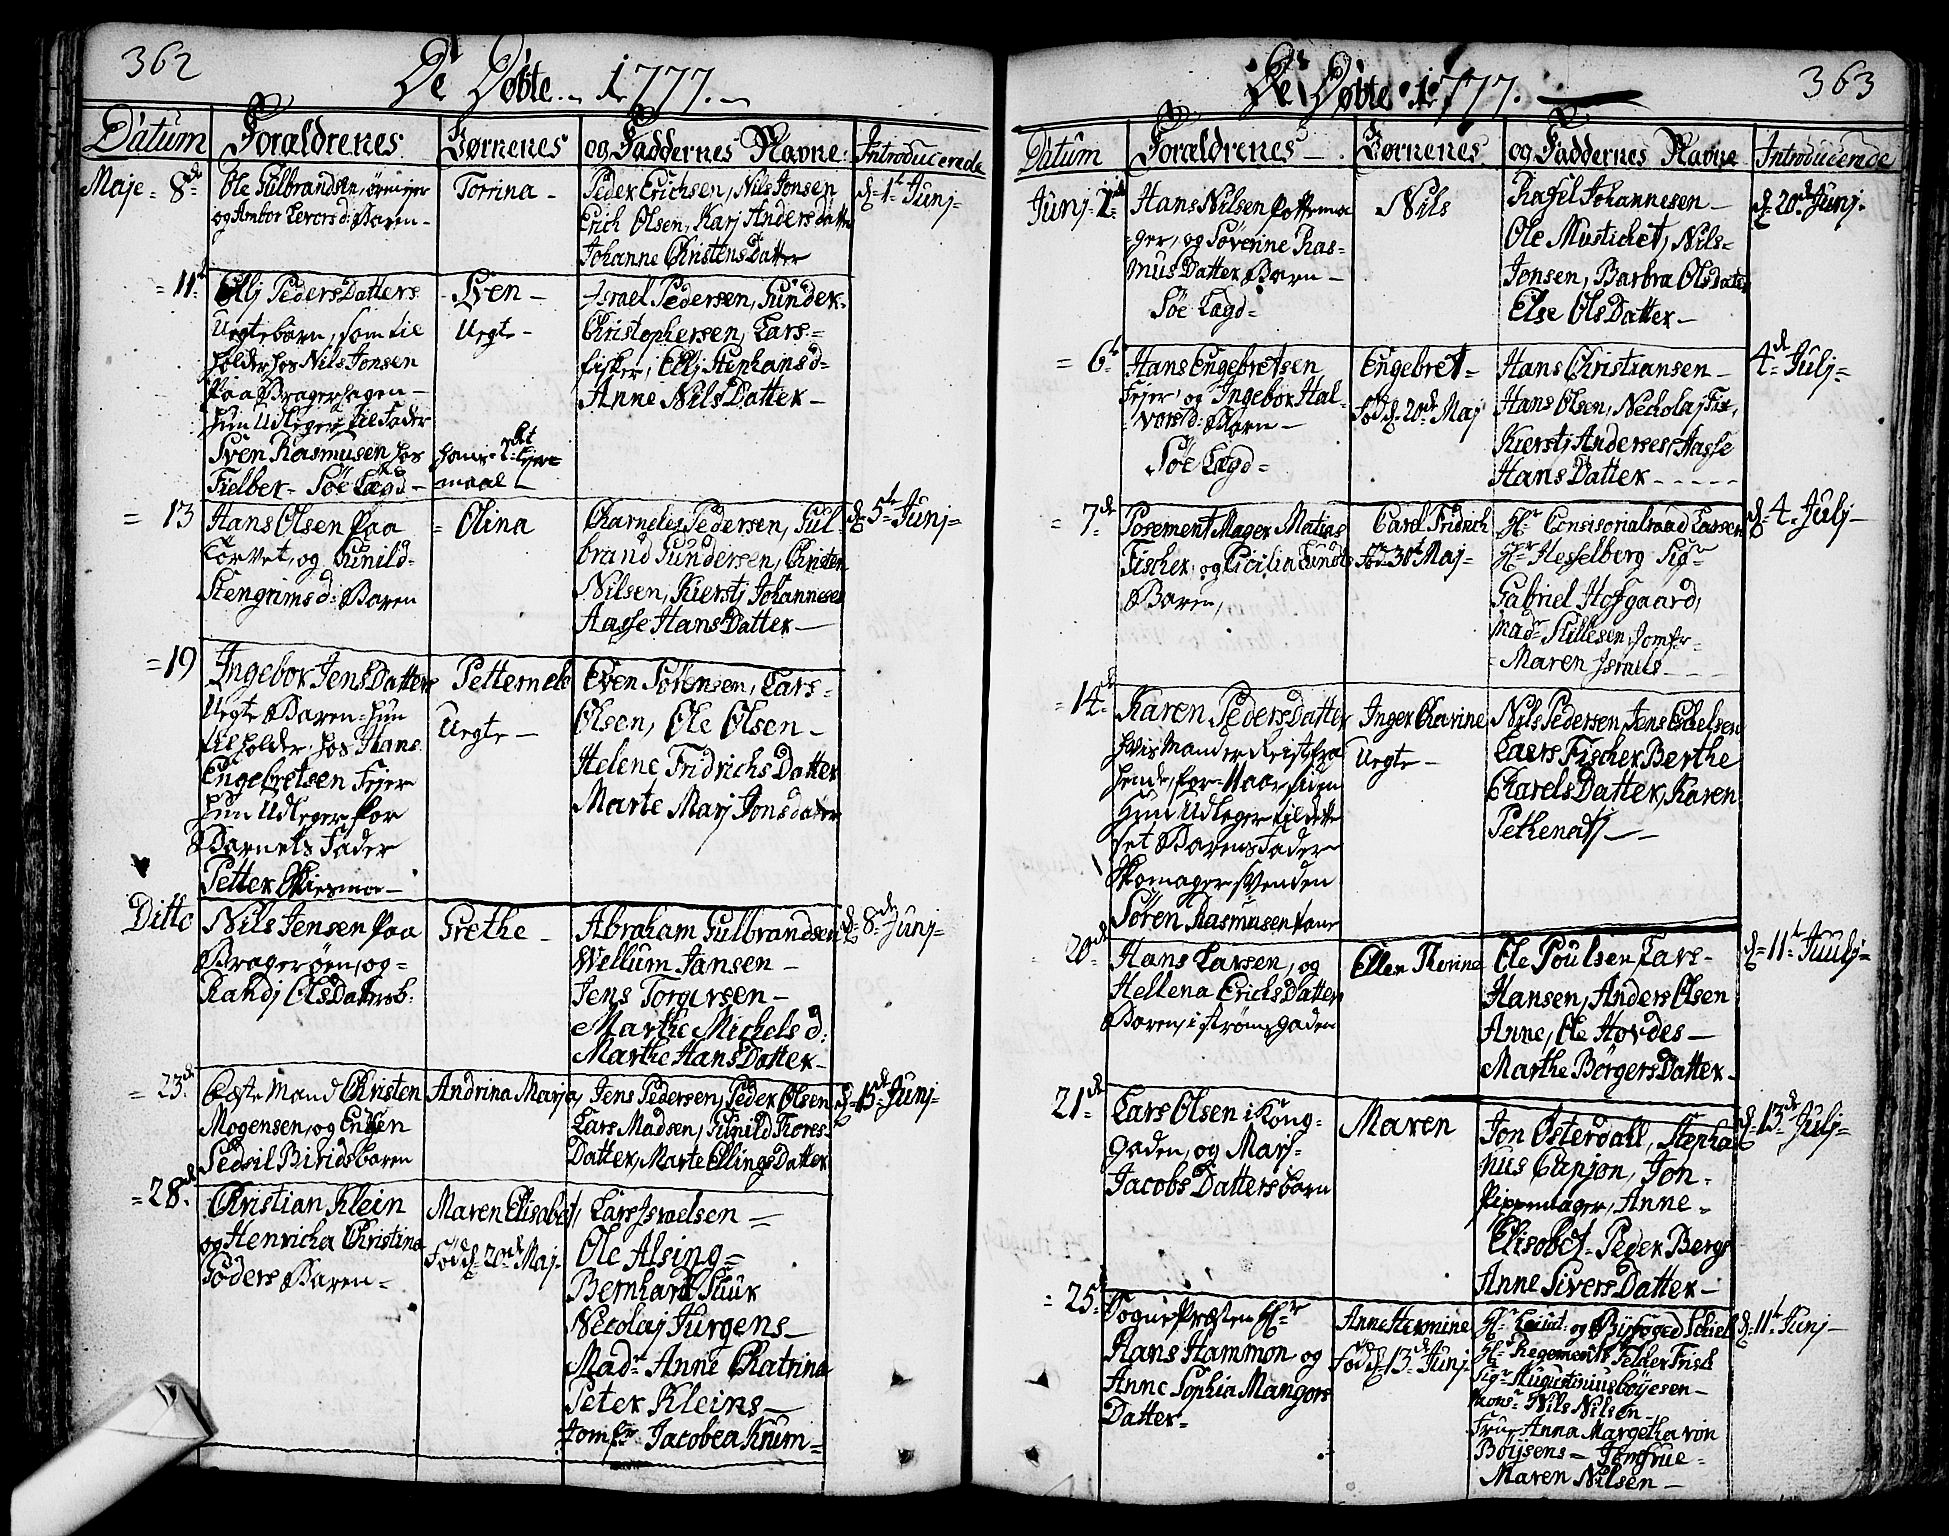 362
De Døbte 1777.
Datum Foraldrenes Børnenes og Faddernes Navne: Introducerede
Maje - 8de Ole Gulbrandsen
og Ambor Levors d: Baren -
Torrina -
Peder Erichsen, Nils Jonsen
Erich Olsen, Karj Anders datter
Johanne Christens Datter
d: 1t Junj -
= 11t Ellj Peders Datters
Uegte barn, som til
holder hos Nils Jonsen
Paa Bragerhagen -
hun Udleger til Fader
Sven Rasmusen hos
Fielber - Söe Lagd -
Sven -
Uegte -
hans 1ste Leyer
maal
Israel Pedersen, Gunder
Christophersen, Lars =
fisker, Ellj Stephans d =
Anne Nils Datter -
= 13 Hans Olsen Paa
Torvet, og Gunild =
Stengrims d: Baren
= Olina
Charnelius Pedersen, Gul =
brand Gundersen, Christen
Nilsen, Kierstj Johannesen
Aasse Hans Datter -
d: 5t Junj =
= 19 Ingebor Jens Datters
Uegte Baren = hun
til holder hos Hans
Engebretsen Fejer
hun Udleger for
Barnets Fader
Petter
Petternele
Uegte -
Even Sörensen, Lars =
Olsen, Ole Olsen -
Helene Fridrichs Datter
Marte Marj Jons datter
Ditto Nils Jensen Paa
Bragerøen, og =
Randj Ols Datters b:
Grethe -
Abraham Gulbrandsen
Wellum Jansen -
Jens Torgersen -
Marthe Michels d:
Marthe Hans Datter -
d: 8de Junj =
= 23de Egte Mand Christen
Mogensen, og Enken
Sedsil Birids baren
Andrina Marja,
Jens Pedersen, Peder Olsen
Lars Madsen, Gunild Thores =
Datter, Marte Ellings Datter
d: 15de Junj =
= 28de Christian Klein
og Henricha Christina
Göders Baren =
Maren Elisabet,
Föd d: 20de Maj -
Lars Israelsen =
Ole Alsing =
Bernhard Stuur
Necolaj Jürgens -
Madr Anne Chatrina
Peter Kleins -
Jomfr Jacobea Krum =
363
De Døbte 1777.
Datum Foraldrenes - Børnenes og Faddernes Navne Introducerede
Junj - Hans Nilsen Pottema
ger, og Söverine Ras =
mus Datter Barn -
Söe Lagd =
Nils
Ole Mustichet, Nils =
Jonsen, Barbra Ols Dater
Else Ols Datter -
d: 20de Junj -
= 6t Hans Engebretsen
Fejer, og Ingebor Hal =
vors d: Barn -
Söe Lagd =
Engebret =
Föd d: 20de Maj
Hans Christiansen -
Hans Olsen, Neckolaj Fix,
Kierstj Anderses, Aasse
Hans Datter - - - - -
4de Julj =
= 7de Posement Mager Matias
Fischer, og Cicilia Lunds
Baren,
Carel Fridrich
Föd 30t Maj -
Hr Consisorialraad Lassen
Hr Hesselberg Sigr
Gabriel Hofgaard,
Madr Stillesen, Jomfr -
- Maren Israels - - -
d: 4 Julj -
= 14de Karen Peders datter
hvis Mand er Reist fra
hende, for - Aar siden
Hun Udleger til dette
set Barens Fader
Skomager Svenden
Sören Rasmusen
Inger Charine
Uegte -
Nils Pedersen, Jens
Laers Fischer Berthe
Charels Datter, Karen
- 20de Hans Larsen, og
Hellena Erichs Datters
Baren, i Strömsgaden
Ellen Thorine
Ole Poulsen, Lars -
Hansen, Anders Olsen
Anne, Ole Hovdes -
Marthe Börgers Datter -
d: 11t Juulj =
21de Lars Olsen i Kong =
gaden, og Mari =
Jacobs Datters barn
Maren
Jon Österdall, Stepha
nus Capjon, Jon -
Pippemager, Anne -
Elisabet - Peder Bergs
Anne Sivers Datter -
d: 13de Julj =
= 25t Sogne Præsten Hr
Hans Hammon og
Anne Sophia Mangors
Datter -
Anne Hermine
Föd d: 13de Junj
Hr Leiut: og Byfoged Schiel
Hr Regements Felder Frisk
Sigr Augustinius böyesen -
Monsr Nils Nilsen
Frue Anna Margetha von
Böyysens - Jomfrue =
Maren Nilsen -
d: 11t Junj -